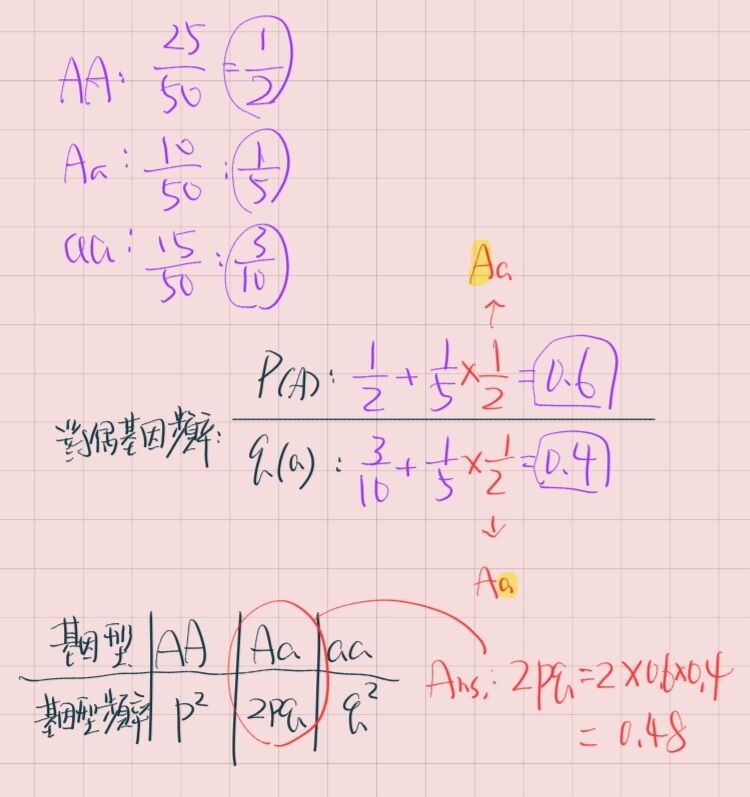 AA: 25/50 = 1/2
Aa: 10/50 : 1/5
aa: 15/50 : 3/10
Aa
↑
P(A): 1/2 + 1/5 × 1/2 = 0.6
對偶基因頻率:
q(a): 3/10 + 1/5 × 1/2 = 0.4
↓
Aa
基因型 | AA | Aa | aa
基因型頻率 | p² | 2pq | q²
Ans: 2pq = 2 × 0.6 × 0.4
= 0.48